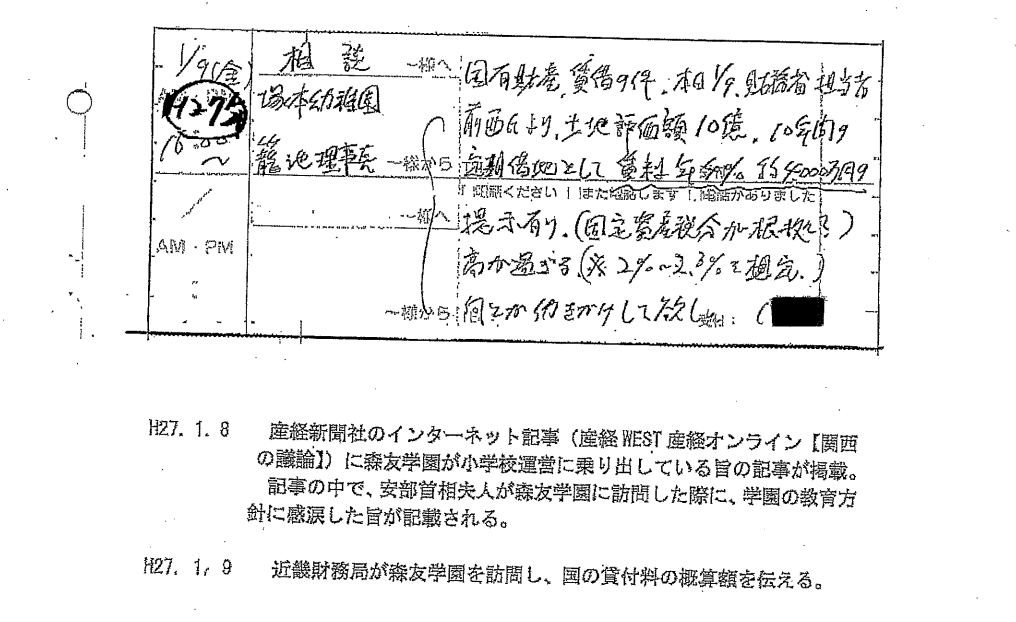 1/9(金) 相談 〜様へ 国有財産 賃借の件. 本日1/9. 財務省 担当者
H27年 塚本幼稚園 前西氏より, 土地評価額10億. 10年間の
10:00〜 籠池理事長 〜様から 定期借地として 賃料 年 4% 約4000万円の
電話ください ! また電話します ! 電話がありました
〜様へ 提示有り. (固定資産税分が根拠?)
AM・PM 高か過ぎる. (※ 2%〜2.3%を想定.)
〜様から 何とか働きかけして欲し 受付: (
H27. 1. 8 産経新聞社のインターネット記事(産経 WEST 産経オンライン【関西
の議論】)に森友学園が小学校運営に乗り出している旨の記事が掲載。
記事の中で、安部首相夫人が森友学園に訪問した際に、学園の教育方
針に感涙した旨が記載される。
H27. 1. 9 近畿財務局が森友学園を訪問し、国の貸付料の概算額を伝える。